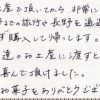 土産で頂いてから、非常に
の旅行で長野を通過
ず購入して帰ります。
達のお土産に渡すと
喜んで頂けました。
お菓子をありがとうござ